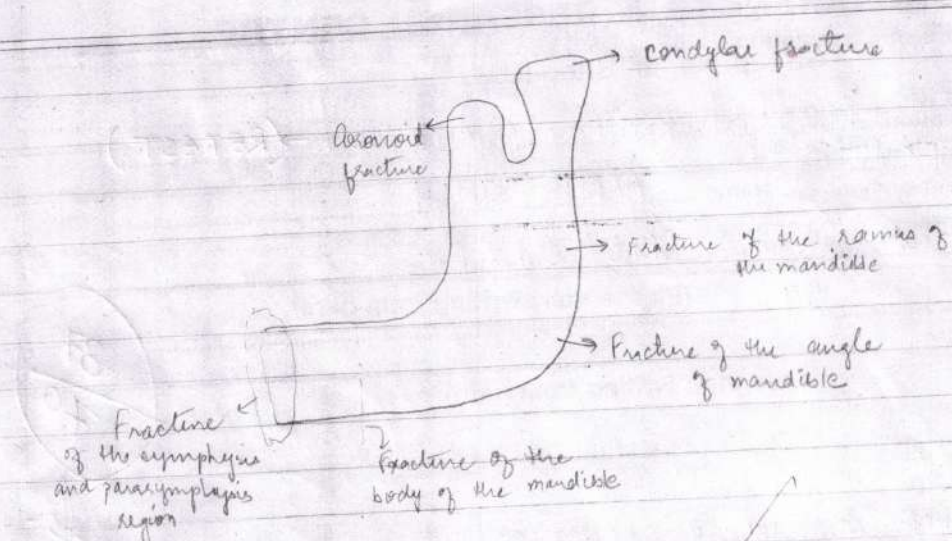 condylar fracture
Coronoid
fracture
Fracture of the ramus of
the mandible
Fracture of the angle
of mandible
Fracture
of the symphysis
and parasymphysis
region
Fracture of the
body of the mandible